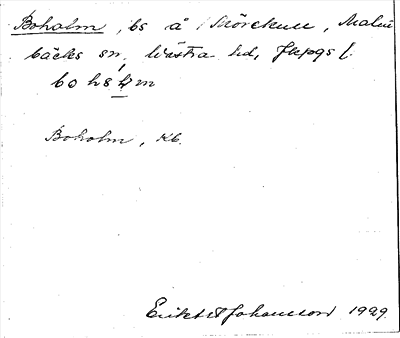 Boholm, bs å Mörekull, Malm
bäcks sn, Västra hd, Jkpgs l.
bohåḷm
Boholm, Kb.
Erikst Johansson 1929